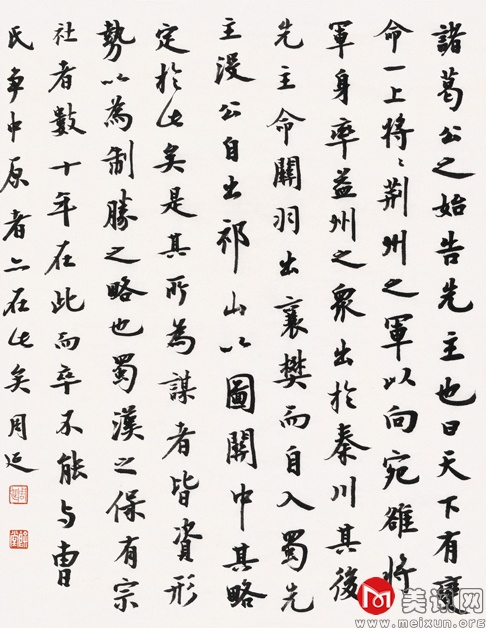 諸葛公之始告先主也曰天下有變
命一上將〻荊州之軍以向宛雒將
軍身率益州之眾出於秦川其後
先主命關羽出襄樊而自入蜀先
主沒公自出祁山以圖關中其略
定於此矣是其所為謀者皆資形
勢以為制勝之略也蜀漢之保有宗
社者數十年在此而卒不能与曹
氏爭中原者亦在此矣周延
美讯网
www.meixun.org